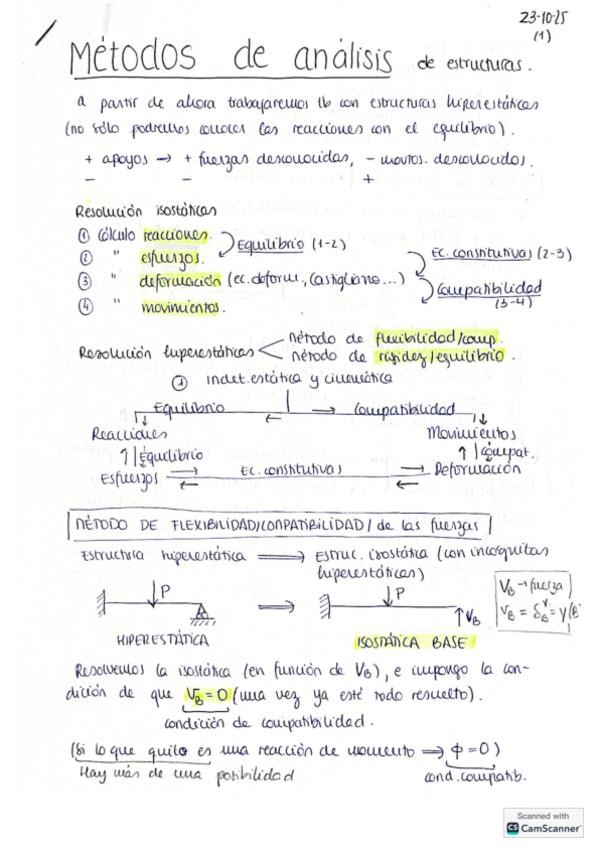 23-10-25
(1)
Métodos de análisis de estructuras.
a partir de ahora trabajaremos tb con estructuras hiperestáticas
(no sólo podremos conocer las reacciones con el equilibrio).
+ apoyos → + fuerzas desconocidas, - movtos. desconocidos.
- - +
Resolución isostáticas
① Cálculo reacciones. Equilibrio (1-2)
② " esfuerzos. Ec. constitutivas (2-3)
③ " deformación (ec. deform., Castigliano...) Compatibilidad
④ " movimientos. (3-4)
Resolución hiperestáticas
Método de flexibilidad/comp.
Método de rigidez/equilibrio.
① Indet. estática y cinemática
Equilibrio → Compatibilidad
←
Reacciones Movimientos
↑↓ Equilibrio ↑↓ Compat.
Esfuerzos Ec. constitutivas Deformación
MÉTODO DE FLEXIBILIDAD/COMPATIBILIDAD/ de las fuerzas
Estructura hiperestática ⟹ Estruc. isostática (con incógnitas
hiperestáticas)
P P
V_B
V_B → fuerza
v_B = δ_B^v = y(B
HIPERESTÁTICA ISOSTÁTICA BASE
Resolvemos la isostática (en función de V_B), e impongo la con-
dición de que v_B = 0 (una vez ya esté todo resuelto).
condición de compatibilidad.
(Si lo que quito es una reacción de momento ⟹ ϕ = 0)
Hay más de una posibilidad cond. compatib.
Scanned with
CS CamScanner